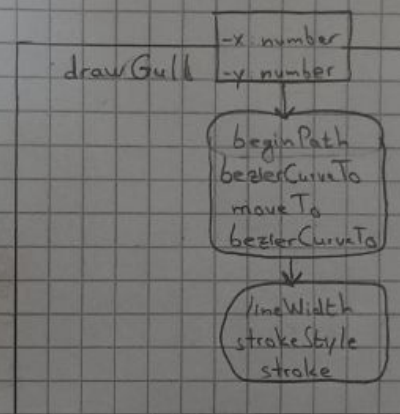 -x number
drawGull
-y number
beginPath
bezierCurveTo
moveTo
bezierCurveTo
lineWidth
strokeStyle
stroke